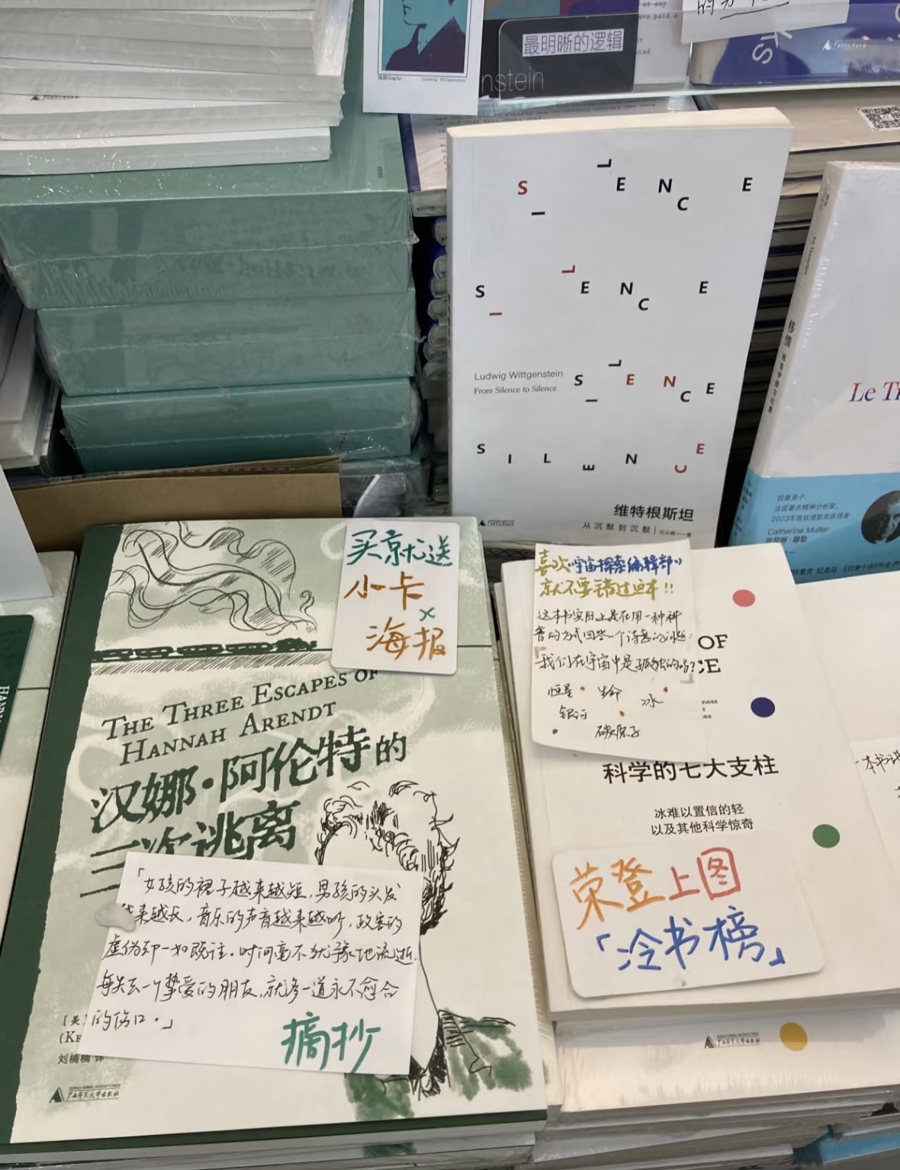 最明晰的逻辑
nstein
SILENCE
SILENCE
Ludwig Wittgenstein
From Silence to Silence
SILENCE
SILENCE
维特根斯坦
从沉默到沉默
移情
Le T
拉康弟子、
法国著名精神分析家、
Catherine Muller
买就送
小卡
×
海报
THE THREE ESCAPES OF
HANNAH ARENDT
汉娜·阿伦特的
三次逃离
「女孩的裙子越来越短,男孩的头发
越来越长,音乐的声音越来越响,政客的
虚伪却一如既往。时间毫不犹豫地流逝,
每失去一个挚爱的朋友,就多一道永不愈合
的伤口。」
摘抄
[美]
(KE
刘楠楠 译
广西师范大学出版社
喜欢《宇宙探索编辑部》
就不要错过这本!!
这本书实际上是在用一种科
普的方式回答一个诗意的问题:
「我们在宇宙中是孤独的吗?」
恒星 生命 冰
银河
碳原子
OF
CE
科学的七大支柱
冰难以置信的轻
以及其他科学惊奇
荣登上图
「冷书榜」
广西师范大学出版社